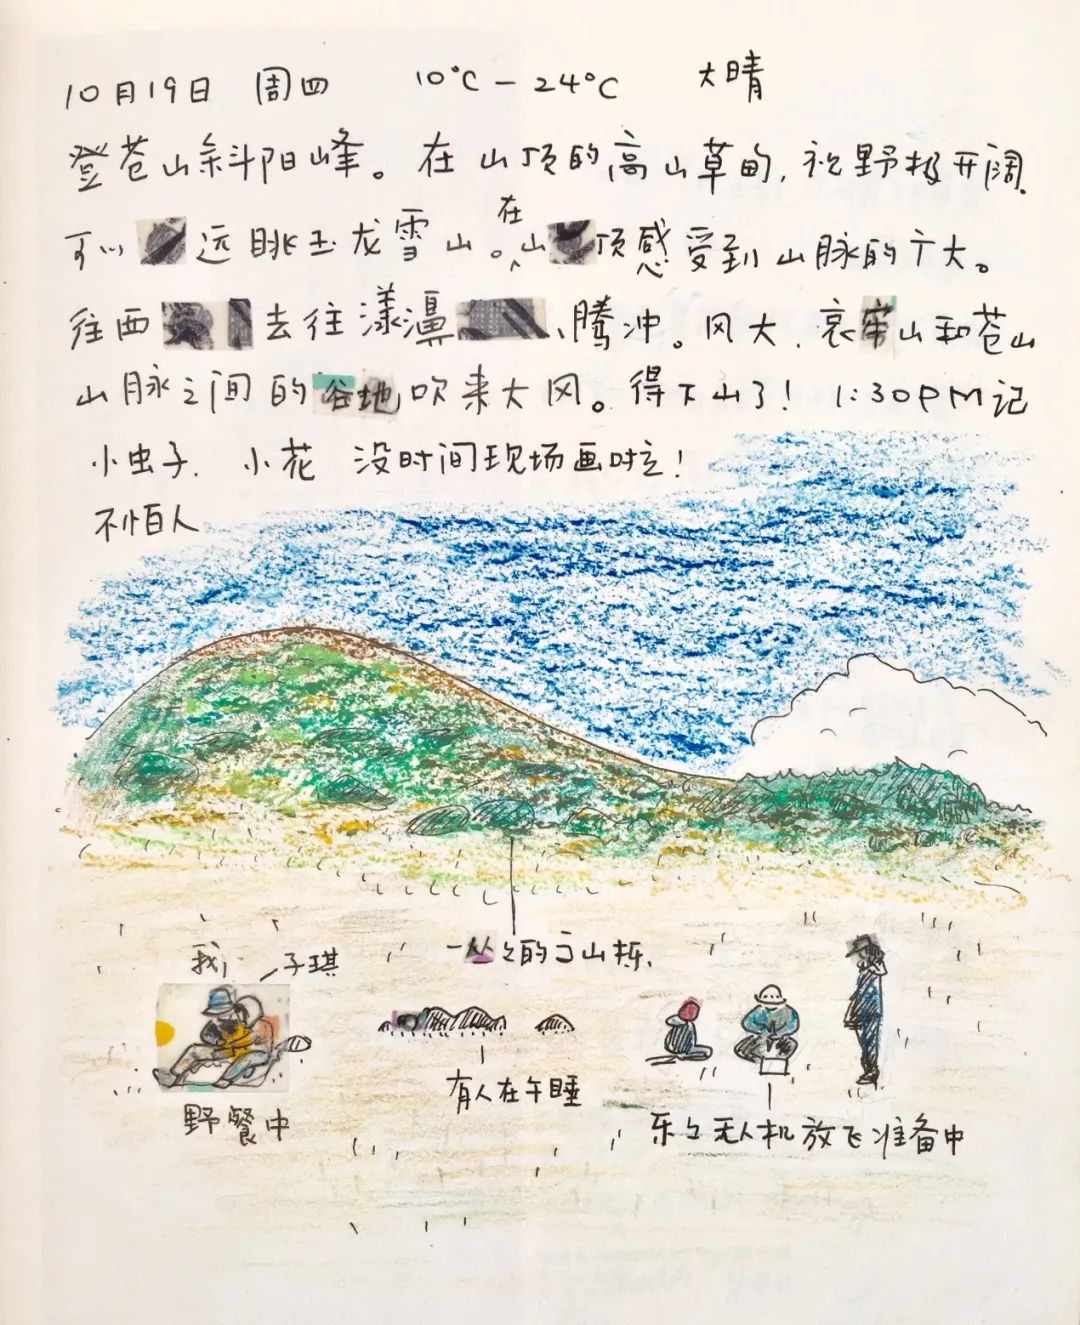 10月19日 周四 10°C-24°C 大晴
登苍山斜阳峰。在山顶的高山草甸,视野极开阔
可以远眺玉龙雪山。在山顶感受到山脉的广大。
往西去往漾濞、腾冲。风大,哀牢山和苍山
山脉之间的谷地吹来大风。得下山了! 1:30PM记
小虫子. 小花 没时间现场画啦!
不怕人
我 子琪
一丛々的 山栎.
野餐中
有人在午睡
乐々无人机放飞准备中